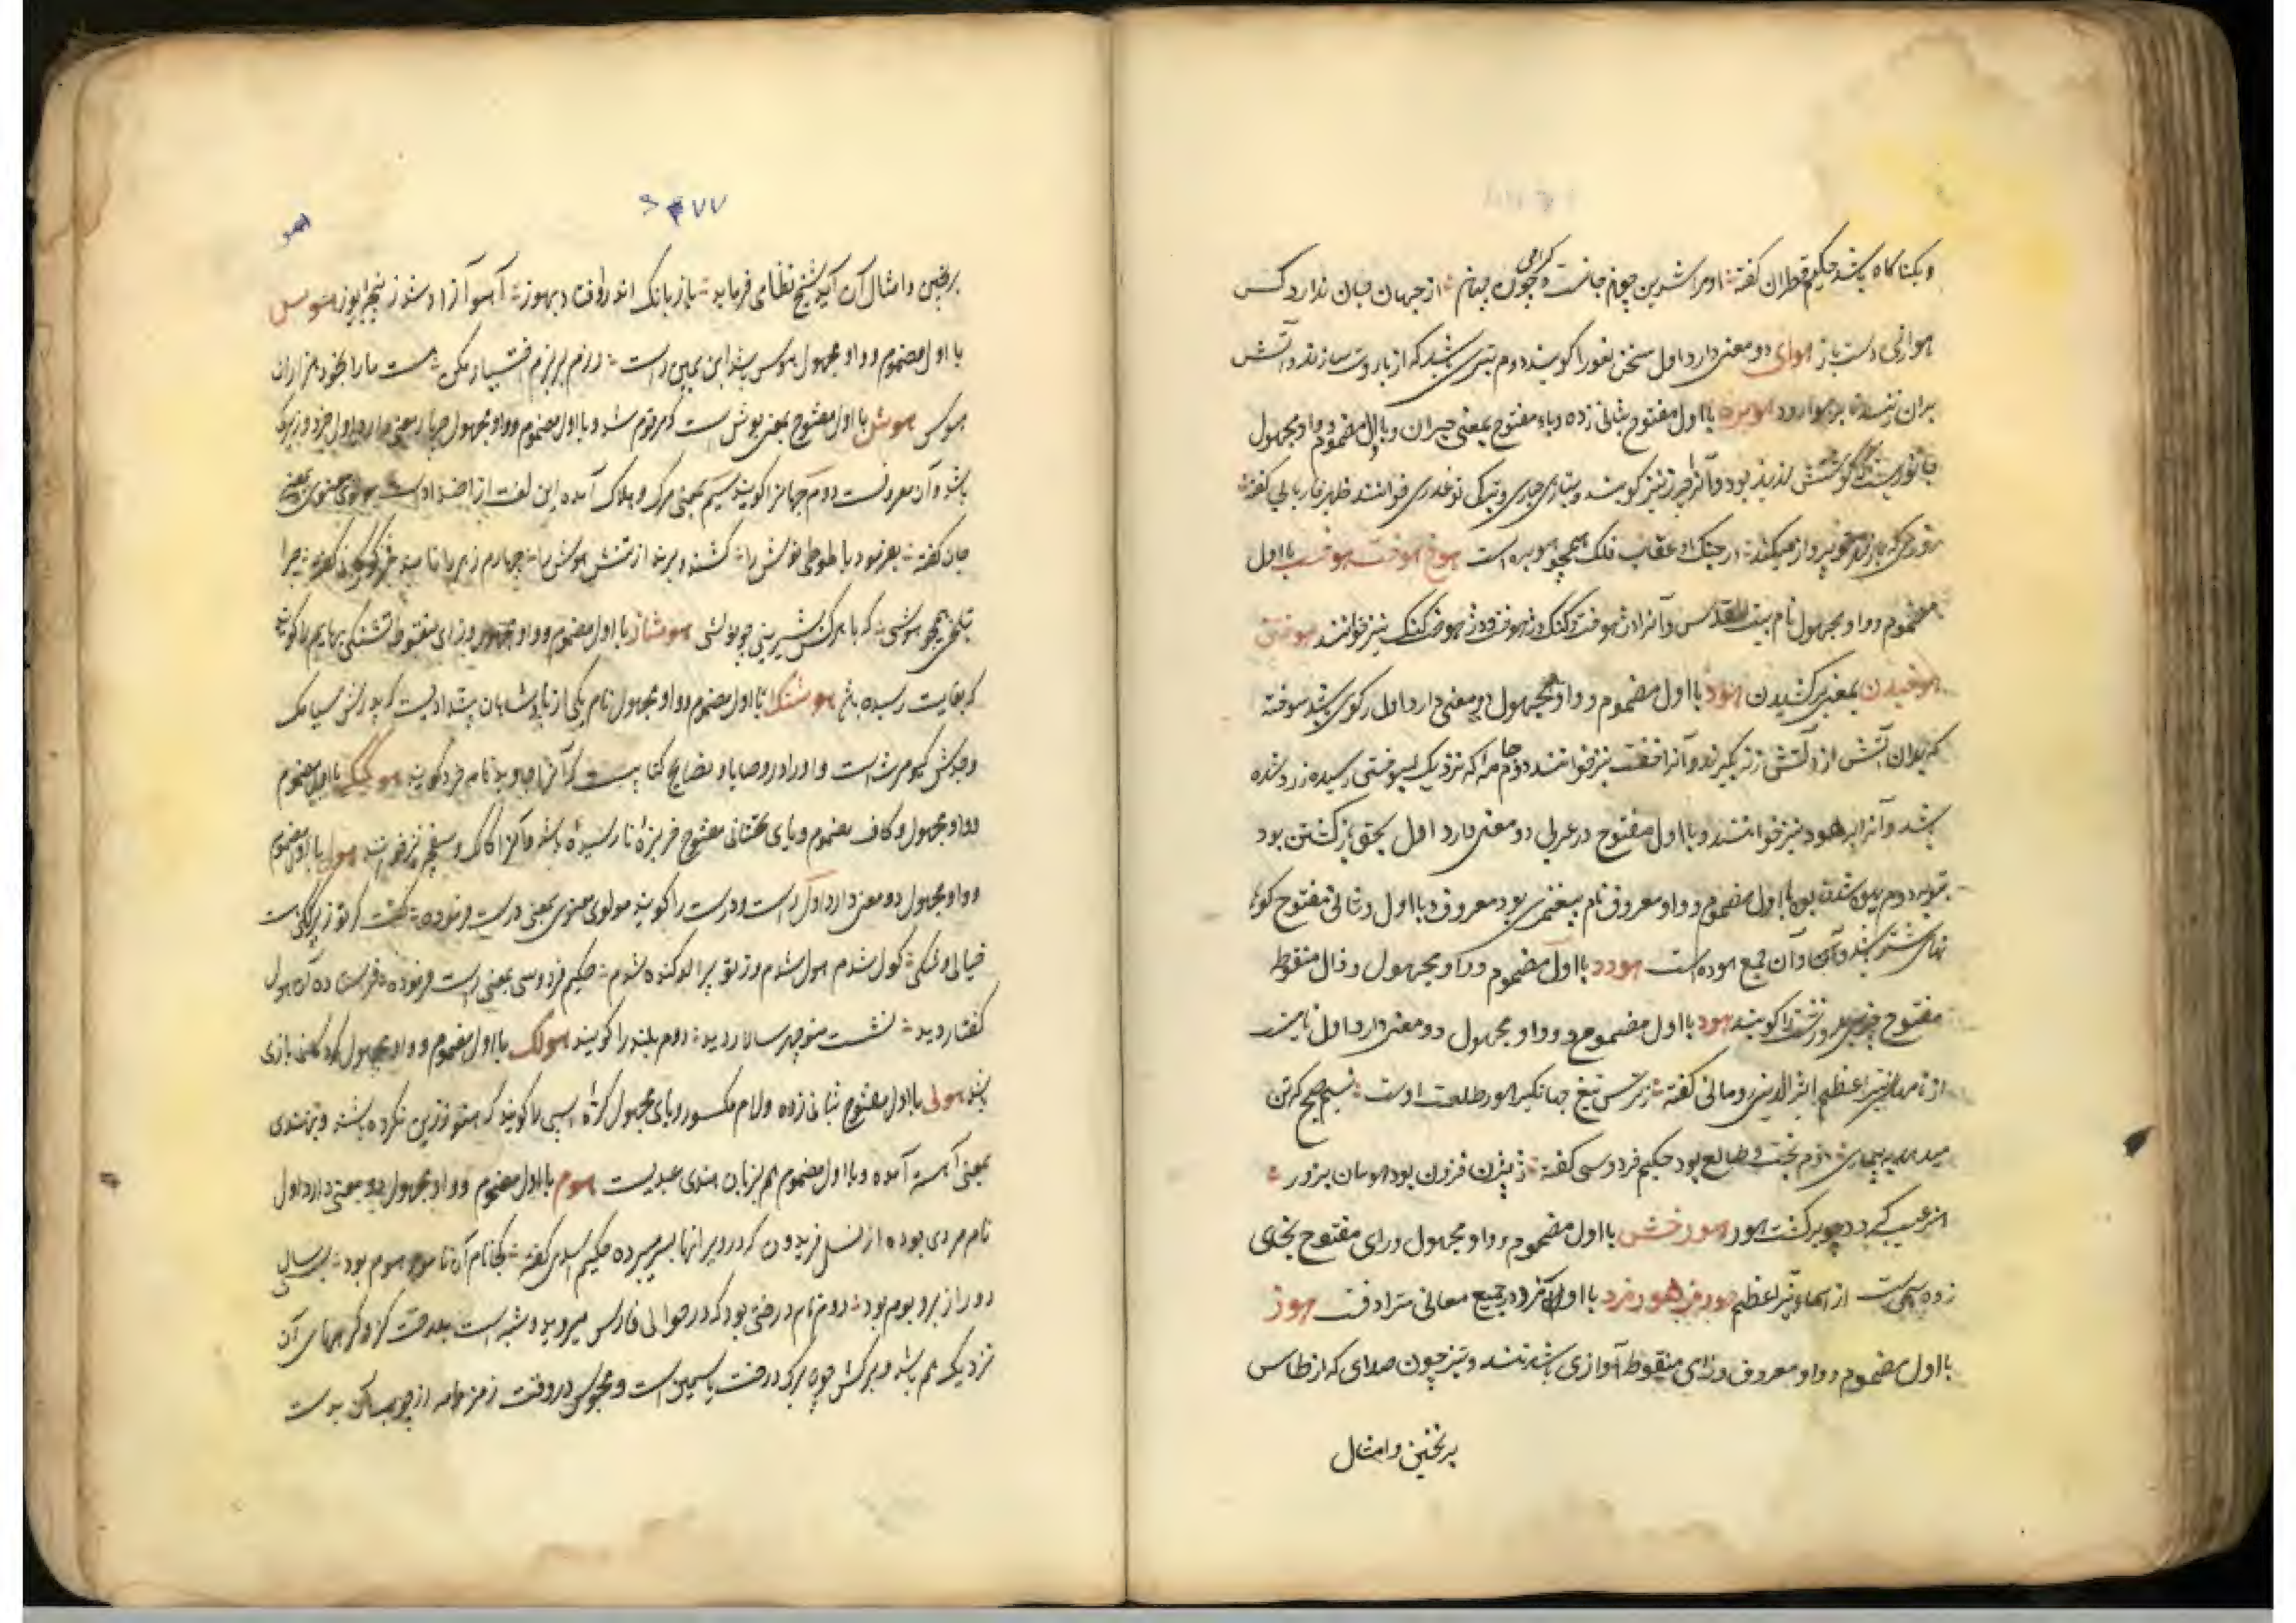 و یکتا کاه باشد حکیم قطران گفته اومرا شد بن چو جانست و چون جهانم از جهان جان ندارد کس
گرامی
هوازی دست باز هوای دو معنی دارد اول سخن لغو را گویند دوم تیری باشد که از باروت سازند و آتش
بران زنند تا بر هوا رود هوبره با اول مفتوح بثانی زده و باء مفتوح بمعنی حیران و با اول مضموم و واو مجهول
جانوریست که گوشتش لذیذ بود و آنرا چرز نیز گویند و بتازی حباری و بترکی توغدری خوانند ظهیر فاریابی گفته
پرواز میکند در چنک او عقاب فلک همچو هوبره است هوخ هوخت هوخت با اول
مضموم و واو مجهول نام بیت المقدس و آنرا دز هوخت و کنک دز هوخت و دز هوخت کنک نیز خوانند هوختن
هوخیدن بمعنی برکشیدن هود با اول مضموم و واو مجهول دو معنی دارد اول رکوی باشد سوخته
که بدان آتش از آتش زنه گیرند و آنرا خف نیز خوانند دوم جامه را که نزدیک بسوختن رسیده زرد شده
باشد و آنرا برهود نیز خوانند و با اول مفتوح در عربی دو معنی دارد اول بحق بازگشتن بود
بتوبه دوم با اول مضموم و واو معروف نام پیغمبری بود معروف و با اول و ثانی مفتوح کوهان
نهای شتر باشد و آن جمع هوده است هودد با اول مضموم و واو مجهول و ذال منقوط
مفتوح چیزی درشت را گویند هود با اول مضموم و واو مجهول دو معنی دارد اول نامیست
از نامهای نیر اعظم اثیر الدین رومانی گفته ز ترس تیغ جهانگیر هور طلعت اوست نسیم صبح که تن
میدهد به بیماری دوم بخت و طالع بود حکیم فردوسی گفته ز بیژن فزون بود هومان بزور
هنر عیب گردد چو برگشت هور هورخش با اول مضموم و واو مجهول و رای مفتوح بخای
زده اسمیست از اسماء نیر اعظم هورمز هورمزد با اول اورمزد در جمیع معانی مترادفست هوز
با اول مضموم و واو معروف و زای منقوط آوازی باشد تند و تیز چون صدای که از طاس
برنجین و امثال
۴۷۷
هو
برنجین و امثال آن آید شیخ نظامی فرماید باز بانک اندر اوفتاد بهوز آهو آزاد شد ز پنجه یوز هوس
با اول مضموم و واو مجهول هوس باشد ابن یمین راست رزم بر بزم اختیار مکن هست ما را بخود هزاران
هوس هوش با اول مفتوح بمعنی بوش است که مرقوم شد و با اول مضموم و واو مجهول چهار معنی دارد اول خرد و زیرک
باشد و آن معروفست دوم جانرا گویند سیم بمعنی مرک و هلاک آمده این لغت از اضداد است مولوی معنوی بمعنی
جان گفته بعزنمود با طوطی نوش را کشنده برید از تنش هوش را چهارم زهر را نامند فخر گرگانی گفته چرا
تلخی همچو هوشی که با هر کس بشیرینی چو نوشی هوشاز با اول مضموم و واو مجهول و زای منقوط تشنگی بهایم را گویند
که بغایت رسیده باشد هوشنک با اول مضموم و واو مجهول نام یکی از پادشاهان پیشدادیست که پدرش سیامک
و جدش کیومرث است و او را در وصایا و نصایح کتابیست که آنرا جاویدنامه خرد گویند هوکیک با اول مضموم
و واو مجهول و کاف مضموم و یای تحتانی مفتوح خربزه نارسیده باشد و آنرا کالک و سفچه نیز خوانند هول با اول مضموم
و واو مجهول دو معنی دارد اول راست و درست را گویند مولوی معنوی بمعنی درست فرموده گفت که تو زیرککی مست
خیالی و شکی گول شدم هول شدم وز تو پراکنده شدم حکیم فردوسی بمعنی راست فرموده فرستاده آن هول
گفتار دید نشست منوچهر سالار دید دوم بلند را گویند هولک با اول مضموم و واو مجهول کردکانی بازی
باشد هولی با اول مفتوح بثانی زده و لام مکسور و یای مجهول کره اسبی را گویند که هنوز زین نکرده باشند و بهندی
بمعنی آهسته آمده و با اول مضموم هم بزبان هندی عیدیست هوم با اول مضموم و واو مجهول دو معنی دارد اول
نام مردی بوده از نسل فریدون که در ویرانها بسر میبرده حکیم اسدی گفته کجا نام آن نامور هوم بود بسالی
دور از بر و بوم بود دوم نام درختی بود که در حوالی فارس میروید و شبیه است بدرخت گز و گره‌های آن
نزدیک هم باشد و برگش چون برک درخت یاسمین است و مجوس در وقت زمزمه از چوبها آن بدست